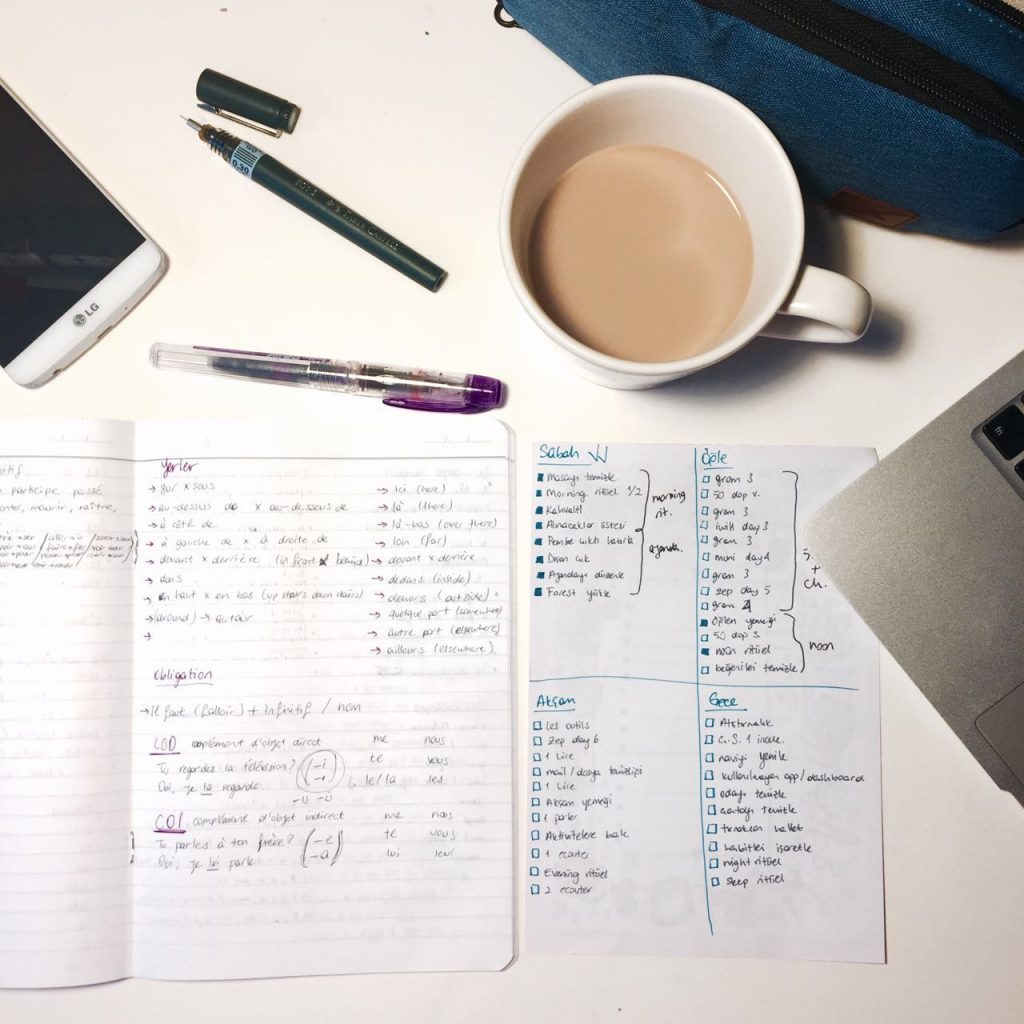 LG
0.30
FABER CASTELL
fn
participe passé
mourir, naître,
Yerler
→ sur x sous
→ au-dessus de x au-dessous de
→ à côté de
→ à gauche de x à droite de
→ devant x derrière (in front x behind)
→ dans
→ en haut x en bas (up stairs down stairs)
→ (around) → autour
→
→ ici (here)
→ là (there)
→ là-bas (over there)
→ loin (far)
→ devant x derrière
→ dedans (inside)
→ dehors (outside)
→ quelque part (somewhere)
→ autre part (elsewhere)
→ ailleurs (elsewhere)
Obligation
→ Il faut (falloir) + infinitif / nom
COD complément d'objet direct me nous
Tu regardes la télévision? te vous
Oui, je la regarde le/la les
COI complément d'objet indirect me nous
Tu parles à ton frère? te vous
Oui, je lui parle lui leur
Sabah
Masayı temizle
Morning ritüel 1/2
Kahvaltı
Alınacaklar listesi
Ajandayı düzenle
Forest yükle
morning
rit.
Öğle
gram 3
50 dap v.
gram 3
day 3
gram 3
muni day 4
gram 3
zep day 5
gram 4
Öğlen yemeği
50 dap s.
noon ritüel
beğenileri temizle
5.
+
ch.
noon
Akşam
Les outils
zep day 6
1 Lire
mail / dosya temizliği
1 Lire
Akşam yemeği
1 parler
Aktivitelere bak
1 ecouter
Evening ritüel
2 ecouter
Gece
Atıştırmalık
G.S. 1 incele.
naviyi yenile
kullanılmayan app/dashboard
odayı temizle
çantayı temizle
tırnakları hallet
habitleri işaretle
night ritüel
sleep ritüel